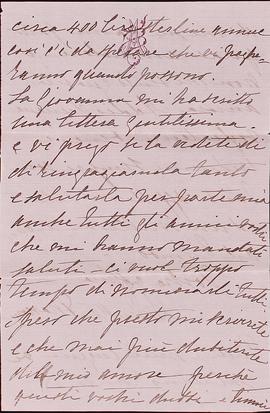 circa 400 lire sterline annue
così c'è da sperare che vi
ranno quando possono.
La Giovanna mi ha scritto
una lettera gentilissima.
e vi prego se la vedete di
di ringraziarmela tanto
e salutarla per parte mia
anche tutti gli amici vostri
che mi hanno mandati
saluti. ci vuol troppo
tempo di nominarli tutti
Spero che presto mi scivrete
e che mai più dubiterete
del mio amore perche
questi vostri dubbi e timori